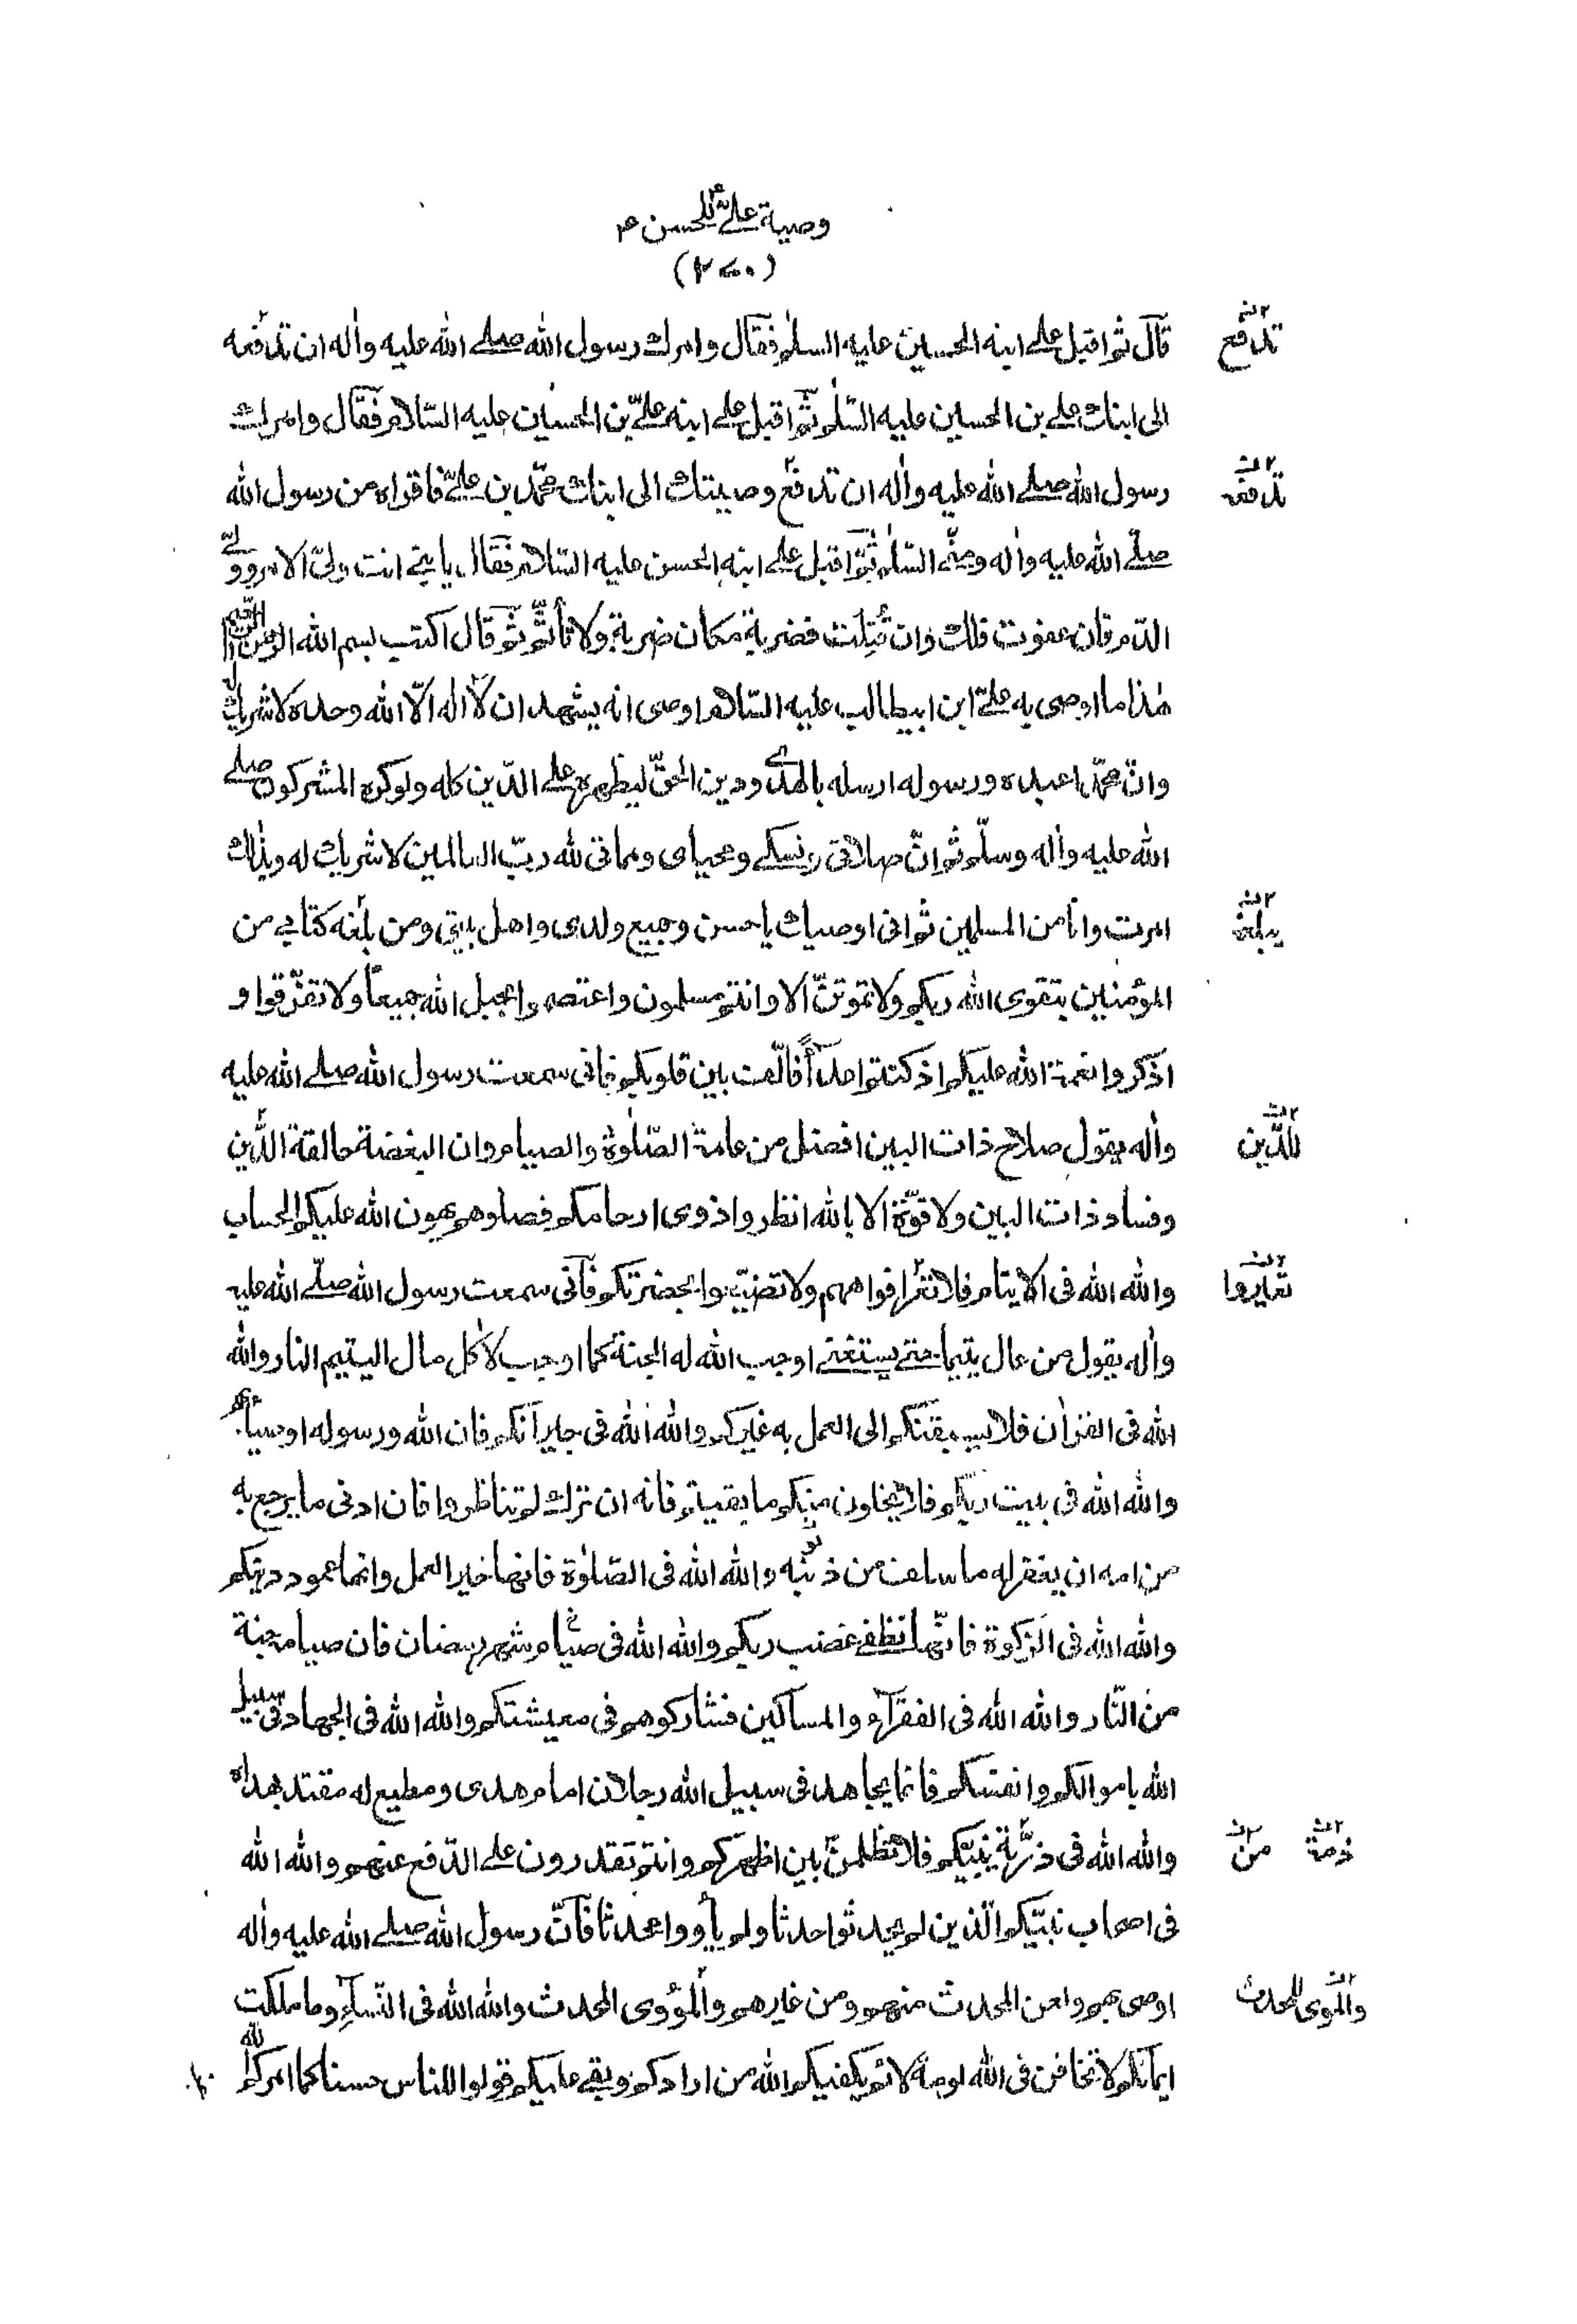 وصية علیؑ للحسن ع
(٢٧٠)
قال ثم اقبل علی ابنه الحسین علیه السلم فقال وامرك رسول الله صلی الله علیه واٰله ان تدفعه
الی ابنك علی بن الحسین علیه السّلم ثم اقبل علی ابنه علیّ بن الحسین علیه السّلام فقال وامرك
رسول الله صلی الله علیه واٰله ان تدفع وصیتك الی ابنك محمّد بن علیّ فاقراه من رسول الله
صلّی الله علیه واٰله ومنّی السّلم ثمّ اقبل علی ابنه الحسن علیه السّلام فقال یا بنی انت ولیّ الامر وولیّ
الدّم فان عفوت فلك وان قُتِلت فضربة مكان ضربة ولا تأثم ثم قال اكتب بسم الله الرحمن الرحیم
هٰذا ما اوصی به علیّ ابن ابیطالب علیه السّلام اوصی انه یشهد ان لا اله الّا الله وحده لا شریك له
وانّ محمّدا عبده ورسوله ارسله بالهدی ودین الحقّ لیظهره علی الدّین كله ولو كره المشركون صلی
الله علیه واٰله وسلّم ثم انّ صلاتی ونسكی ومحیای ومماتی لله ربّ العالمین لا شریك له وبذٰلك
امرت وانا من المسلمین ثم انی اوصیك یا حسن وجمیع ولدی واهل بیتی ومن بلغه كتابی من
المؤمنین بتقوی الله ربكم ولا تموتنّ الا وانتم مسلمون واعتصموا بحبل الله جمیعاً ولا تفرّقوا و
اذكروا نعمة الله علیكم اذ كنتم اعدآءً فالّف بین قلوبكم فانی سمعت رسول الله صلی الله علیه
واٰله یقول صلاح ذات البین افضل من عامة الصّلٰوة والصیام وان البغضة حالقة الدّین
وفساد ذات البین ولا قوّة الا بالله انظروا ذوی ارحامكم فصلوهم یهون الله علیكم الحساب
والله الله فی الایتام فلا تغرّ افواههم ولا تضیّعوا بحضرتكم فانی سمعت رسول الله صلّی الله علیه
واٰله یقول من عال یتیما حتی یستغنی اوجب الله له الجنة كما اوجب لاٰكل مال الیتیم النار والله
الله فی القراٰن فلا یسبقنكم الی العمل به غیركم والله الله فی جیرانكم فان الله ورسوله اوصیا بهم
والله الله فی بیت ربكم فلا یخلون منكم ما بقیتم فانه ان ترك لم تناظروا فان ادنی ما یرجع به
من امه ان یغفر له ما سلف من ذنبه والله الله فی الصّلٰوة فانها خیر العمل وانها عمود دینكم
والله الله فی الزكوة فانّها تطفی غضب ربكم والله الله فی صیام شهر رمضان فان صیامه جنة
من النّار والله الله فی الفقرآء والمساكین فشاركوهم فی معیشتكم والله الله فی الجهاد فی سبیل
الله باموالكم وانفسكم فانما یجاهد فی سبیل الله رجلان امام هدی ومطیع له مقتد بهداه
والله الله فی ذرّیة نبیّكم فلا تظلمنّ بین اظهركم وانتم تقدرون علی الدّفع عنهم والله الله
فی اصحاب نبیّكم الّذین لم یحدثوا حدثا ولم یأووا محدثا فانّ رسول الله صلی الله علیه واٰله
اوصی بهم ولعن المحدث منهم ومن غیرهم والمؤوی المحدث والله الله فی النّسآء وما ملكت
ایمانكم لا تخافن فی الله لومة لائم یكفیكم الله من ارادكم وبغی علیكم قولوا للناس حسنا كما امركم الله
تدفع
تدفعه
یبلغه
للدّین
تغایروا
من
ذمة
والمؤی للمحدث